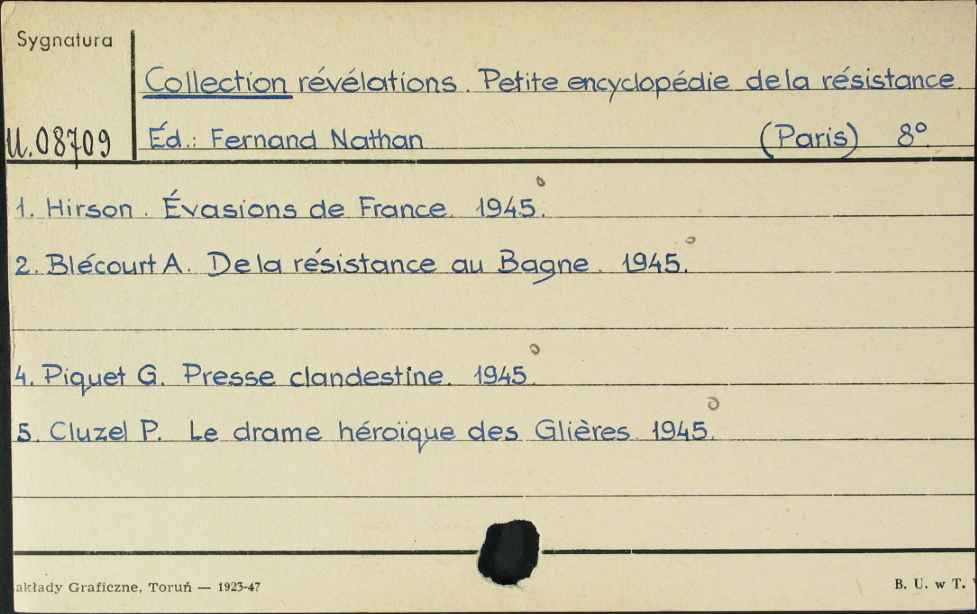 Sygnatura
Collection révélations. Petite encyclopédie de la résistance.
U.08709
Éd.: Fernand Nathan (Paris) 8°.
1. Hirson. Évasions de France. 1945.
2. Blécourt A. De la résistance au Bagne. 1945.
4. Piquet G. Presse clandestine. 1945.
5. Cluzel P. Le drame héroïque des Glières. 1945.
akłady Graficzne, Toruń — 1923-47
B. U. w T.